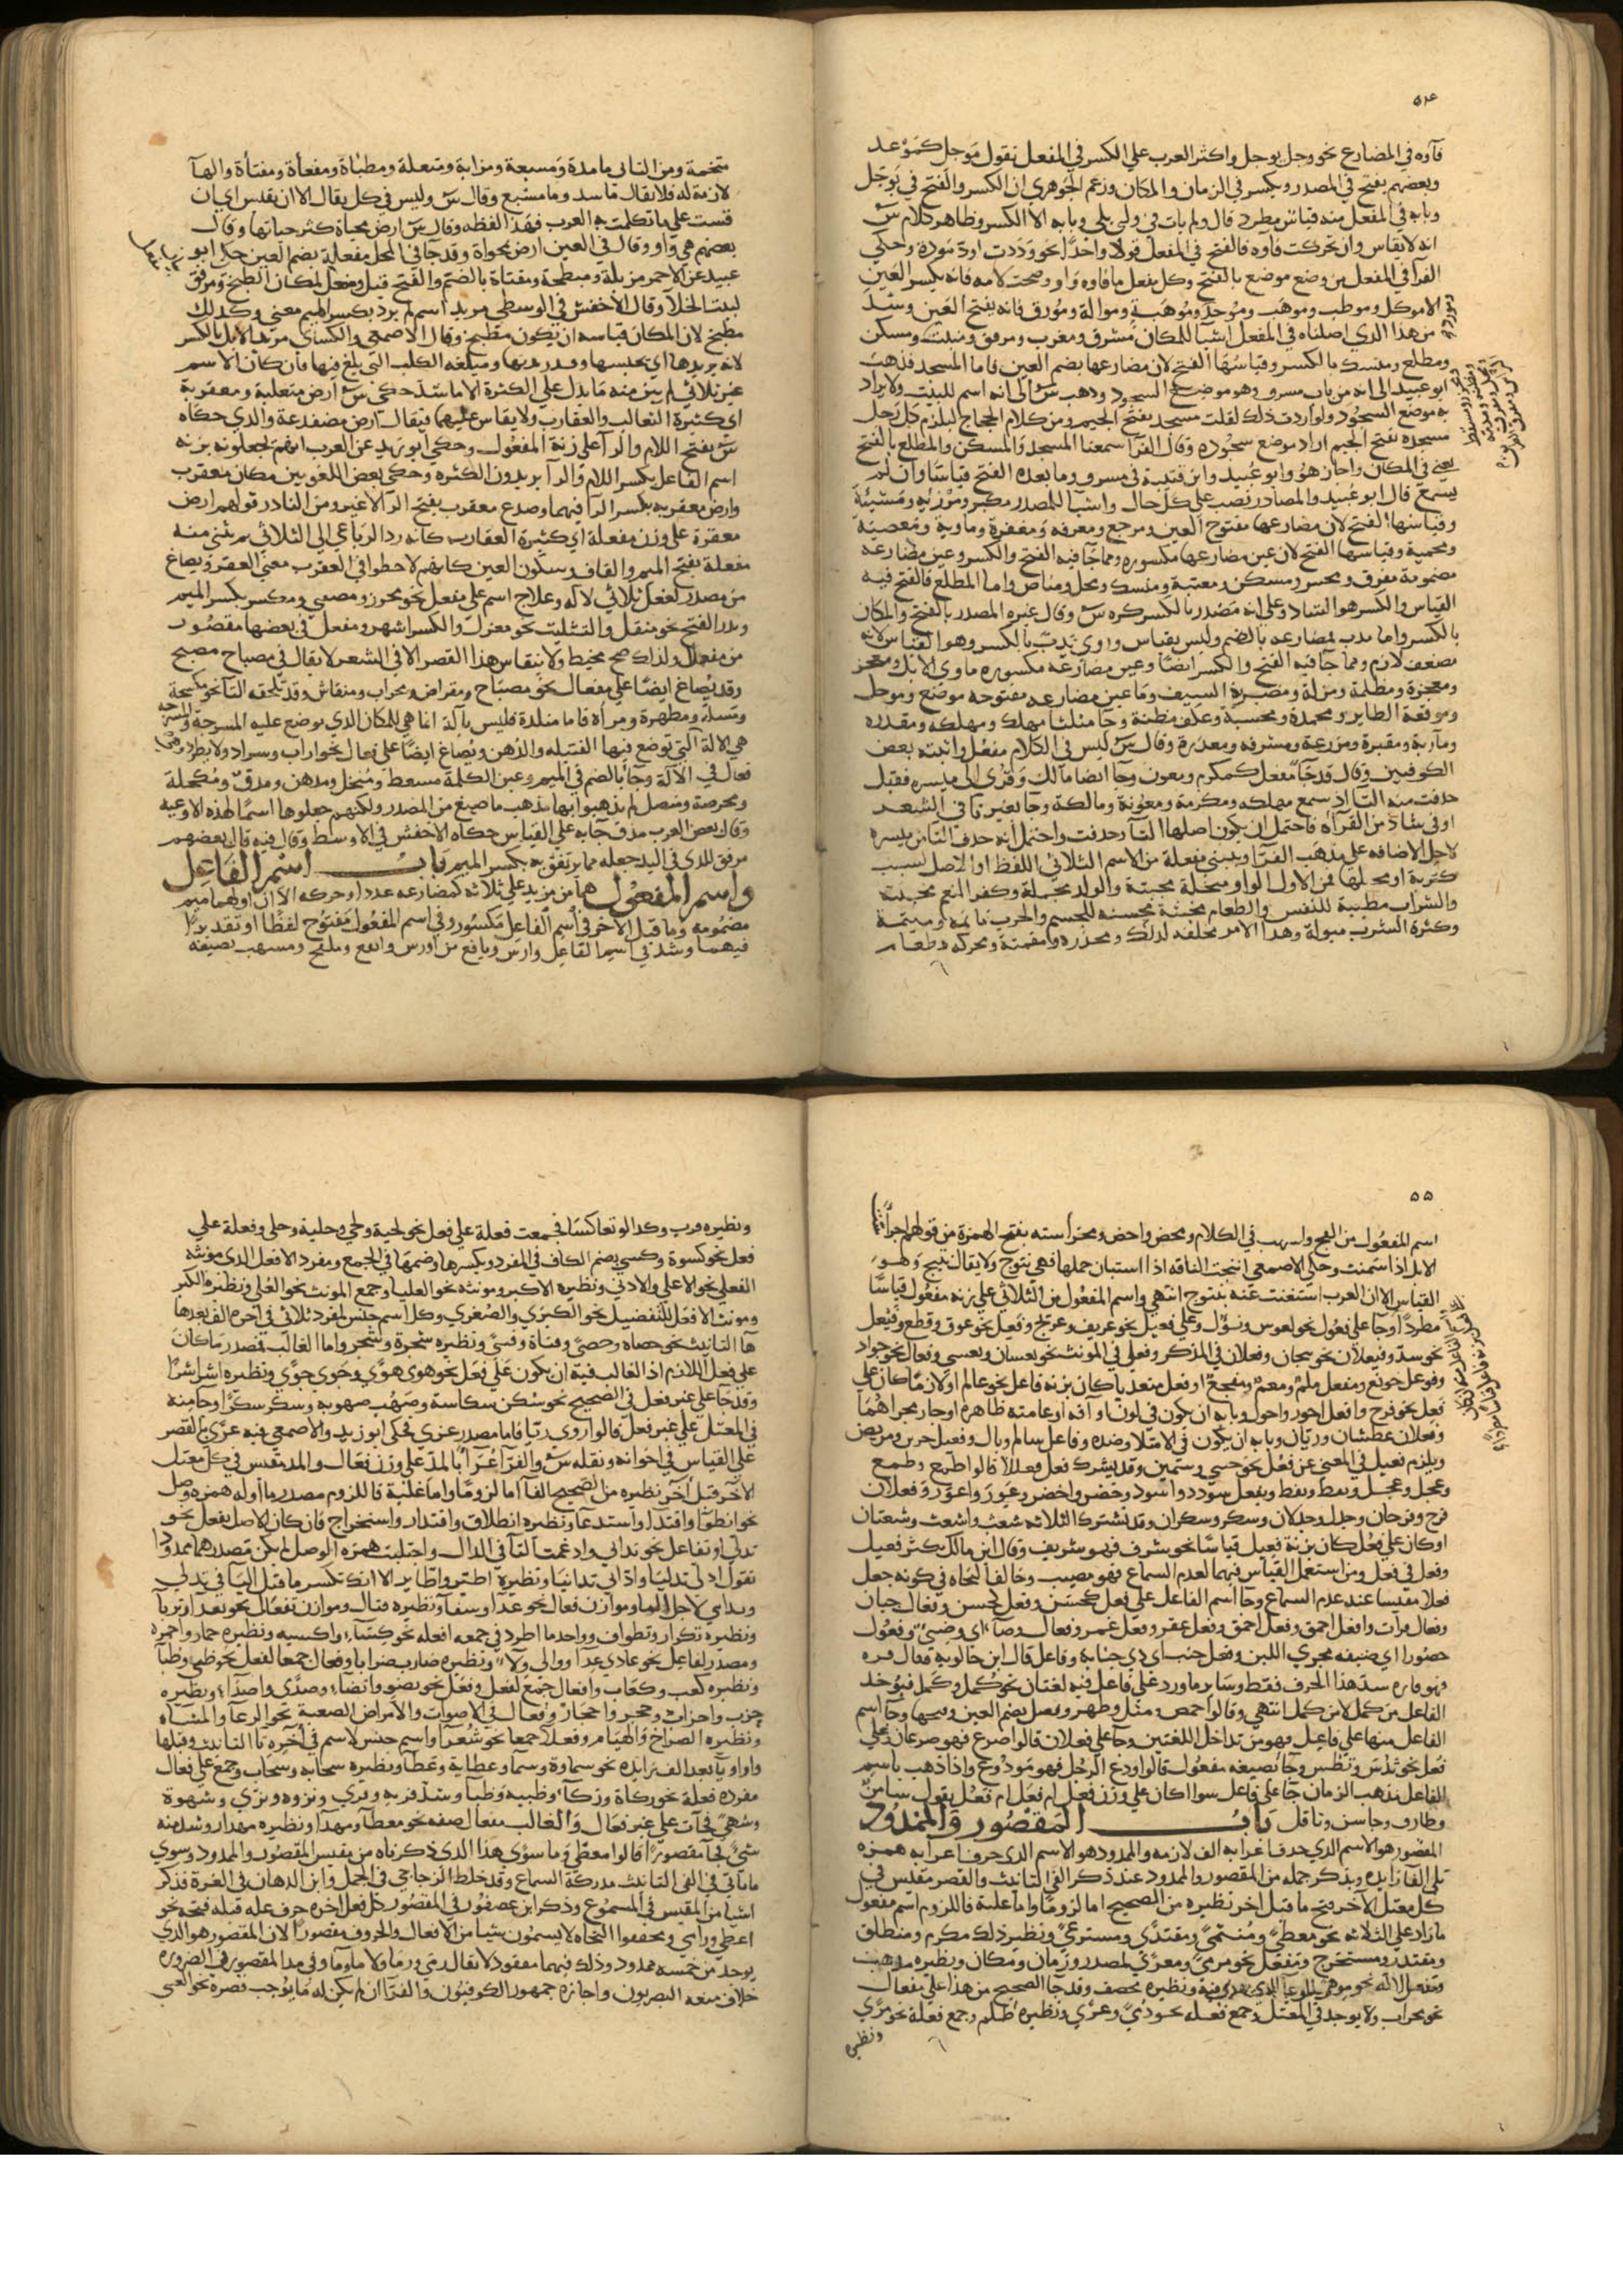 ٥٤
فآؤه في المضارع نحو وجل يوجل واكثر العرب على الكسر في المفعل نقول موجل كموعد
وبعضهم يفتح في المصدر ويكسر في الزمان والمكان وزعم الجوهري ان الكسر والفتح في يوجل
وبابه في المفعل منه قياس مطرد قال ولم يات في ولي يلي وبابه الا الكسر وظاهر كلام س
انه لا يقاس وان تحركت فاؤه فالفتح في المفعل قولا واحدا نحو وددت اود مودة وحكى
الفرآ في المفعل من وضع موضع بالفتح وكل مفعل مما فاوه واو وصحت لامه فانه بكسر العين
الا موكل وموطب وموهب وموحد وموهبة وموالة ومورق فانه بفتح العين وشذ
من هذا الذي اصلناه في المفعل اشيآ للمكان مشرق ومغرب ومرفق ومنبت ومسكن
ومطلع ومنسك بالكسر وقياسها الفتح لان مضارعها بضم العين فاما المسجد فذهب
ابو عبيد الى انه من باب مسرو وهو موضع السجود وذهب س الى انه اسم للبيت ولا يراد
به موضع السجود ولو اردت ذلك لقلت مسجد بفتح الجيم ومن كلام الحجاج ليلزم كل رجل
مسجده بفتح الجيم اراد موضع سجوده وقال الفرآ سمعنا المسجد والمسكن والمطلع بالفتح
يعني في المكان واجاز هو وابو عبيد وابن قتيبة في مسرو وما بعده الفتح قياسا وان لم
يسمع قال ابو عبيد والمصادر نصب على كل حال واشيآ للمصدر مكبر ومرزية ومشيئة
وقياسها الفتح لان مضارعها مفتوح العين ومرجع ومعرفة ومغفرة وماوية ومعصية
ومحمية وقياسها الفتح لان عين مضارعها مكسورة ومما جآ فيه الفتح والكسر وعين مضارعه
مضمومة مفرق ومحشر ومسكن ومعتبة ومنسك ومحل ومناص واما المطلع فالفتح فيه
القياس والكسر هو الشاذ وعلى انه مصدر بالكسر ذكره س وقال غيره المصدر بالفتح والمكان
بالكسر واما مدب لمضارعه بالضم وليس بقياس وروي يدب بالكسر وهو القياس لانه
مضعف لازم ومما جآ فيه الفتح والكسر ايضا وعين مضارعه مكسورة ماوى الابل ومعجز
ومعجزة ومظلمة ومزلة ومضربة السيف وما عين مضارعه مفتوحه موضع وموحل
وموقعة الطاير ومحمدة ومحسبة وعلق مظنة وجآ مثلثا مهلك ومهلكه ومقدره
ومآربة ومقبرة ومزرعة ومشرفه ومعذرة وقال س ليس في الكلام مفعل واثبته بعض
الكوفيين وقال قد جآ مفعل كمكرم ومعون وجآ ايضا مالك وقرى الى ميسره فقيل
حذفت منه التآ اذ سمع مهلكه ومكرمة ومعونة ومالكة وجآ بغير تآ في الشعر
او في شاذ من القرآه فاحتمل ان يكون اصلها التآ وحذفت واحتمل انه حذف التآ من ميسره
لاجل الاضافه على مذهب الفرآ ويبنى مفعلة من الاسم الثلاثي اللفظ او الاصل لسبب
كثرته او محلها فمن الاول الولد مبخلة مجبنة والولد مجهلة وكفر النعم مخبثة
والشراب مطيبة للنفس والطعام مخبثة محسنه للجسم والحرب مايمه وميتمة
وكثرة الشرب مبولة وهذا الامر مخلقه لذلك ومجدره ومقمنة ومحركه وطعام
متخمة ومن الثانى ماسدة ومسبعة ومذابة ومثعلة ومظبأة ومفعأة ومقثأة والهآ
لازمة له فلا يقال ماسد وما مسبع وقال س وليس في كل يقال الا ان يقيس اي ان
قست على ما تكلمت به العرب فهذا لفظه وقال س ارض محياة كثر حياتها وقال
بعضهم هي واو وقال في العين ارض محواة وقد جآ في المحل مفعلة بضم العين حكى ابو
عبيد عن الاحمر مزبلة ومبطخة ومقثاة بالضم والفتح قيل ومفعل لمكان الطبخ ومرفق
لبيت الخلآ وقال الاخفش في الاوسطى مربد اسم لم يرد بكسر الميم معنى وكذلك
مطبخ لان المكان قياسه ان يكون مطبخ وقال الاصمعي والكسائى مربد الابل بالكسر
لانه يربدها اي يحبسها ومبلغه الكلب التى يلغ فيها فان كان الاسم
غير ثلاثي لم يبن منه ما يدل على الكثرة الا ما شذ حكى س ارض مثعلبة ومعقربة
اي كثيرة الثعالب والعقارب ولا يقاس عليهما فيقال ارض مضفدعة والذي حكاه
س بفتح اللام والرآ على زنة المفعول وحكى ابو زيد عن العرب انهم يجعلونه بزنه
اسم الفاعل بكسر اللام والرآ يريدون الكثره وحكى بعض اللغويين مكان معقرب
وارض معقربه بكسر الرآ فيهما وصدغ معقرب بفتح الرآ لا غير ومن النادر قولهم ارض
معقرة على وزن مفعلة اي كثيرة العقارب كانه رد الرباعي الى الثلاثي ثم بني منه
مفعلة بفتح الميم والقاف وسكون العين كانهم لاحظوا في العقرب معنى العقر ويصاغ
من مصدر الفعل ثلاثي لآلة وعلاج اسم على مفعل نحو محرز ومصفى ومكسر بكسر الميم
وندر الفتح نحو منقل والتثليث نحو مغزل والكسر اشهر ومفعل في بعضها مقصور
من مفعال ولذلك صح مخيط ولا ينقاس هذا القصر الا في الشعر لا يقال في مصباح مصبح
وقد يصاغ ايضا على مفعال نحو مصباح ومقراض ومحراب ومنقاش وقد تلحقه التآ نحو مكسحة
ومسلة ومطهرة ومرآة فاما منلدة فليس بآلة انما هي للمكان الذي يوضع عليه المسرجة والمسرجه
هي الآلة التي توضع فيها الفتيله والدهن ويصاغ ايضا على فعال نحو اراب وسراد ولا يطرد
فعال في الآلة وجآ بالضم في الميم وعين الكلمة مسعط ومنخل ومدهن ومدق ومكحلة
ومحرضة ومنصل لم يذهبوا بها مذهب ما صيغ من المصدر ولكنهم جعلوها اسما لهذه الاوعية
وقال بعض العرب مدق جآ به على القياس حكاه الاخفش في الاوسط وقال فيه قال بعضهم
مرفق للذى في اليد جعله مما يرتفق به بكسر الميم باب اسم الفاعل
واسم المفعول هما من مزيد على ثلاثة كمضارعه عددا وحركه الا ان اولهما ميم
مضمومه وما قبل الآخر في اسم الفاعل مكسور وفي اسم المفعول مفتوح لفظا او تقديرا
فيهما وشذ في اسم الفاعل وارس ويافع من اورس وايفع وملفج ومسهب بصيغه
٥٥
اسم المفعول من الفج واسهب في الكلام ومحض واحض ومجزأسته بفتح الهمزة من قولهم اجرأ
الابل اذا سمنت وحكى الاصمعي انتجت الناقه اذا استبان حملها فهي نتوج ولا يقال منتج وهو
القياس الا ان العرب استغنت عنه بنتوج انتهى واسم المفعول من الثلاثي على زنه مفعول قياسا
مطردا وجآ على فعول نحو لعوس ونؤل وعلى فعيل نحو عريف وعرتج وفعل نحو عوق وقطع وفيعل
نحو سيد وفيعلان نحو سيجان وفعلان في المذكر وفعلى في المونث نحو نعسان ونعسى وفعال نحو جواد
وفوعل خوتع ومفعل ملم ومعم ومنفجج او فعل متعديا كان بزنة فاعل نحو عالم او لازما كان على
فعل نحو فرح وافعل احور واحول وبابه ان يكون في لون او آفه او عاهه ظاهرة او جار مجراهما
وفعلان عطشان وريان وبابه ان يكون في الامتلا وضده وفاعل سالم وبال وفعيل حزين ومريض
ويلزم فعيل في المغني عن فعل نحو حيي وسمين وقد يشرك فعل فعلا قالوا طمع وطمع
وعجل وعجل ويقظ ويقظ ويفعل سود واسود وخضر واخضر وعور واعور وفعلان
فرح وفرحان وجذل وجذلان وسكر وسكران وقد تشترك الثلاثه شعث واشعث وشعثان
او كان على فعل كان بزنة فعيل قياسا نحو شرف فهو شريف وقال ابن مالك يكثر فعيل
وفعل في فعل ومن استعمل القياس فيهما لعدم السماع فهو مصيب وخالف النحاه في كونه جعل
فعلا مقيسا عند عدم السماع وجآ اسم الفاعل على فعل كحسن وفعل كخشن وفعال جبان
وفعال فرات وافعل احمق وفعل احمق وفعل عفر وفعل غمر وفعال وضآء اي وضيء وفعول
حصور اي ضيقه مجرى اللبن وفعل جنب اي ذي جنابة وفاعل قال ابن خالويه فقال فره
فهو فاره شذ هذا الحرف فقط وساير ما ورد على فاعل فيه لغتان نحو كمل وكمل فيؤخذ
الفاعل من كمل لا من كمل انتهى وقالوا حمض ومثل وطهر وفعل بضم العين وفتحها وجآ اسم
الفاعل منها على فاعل فهو من تداخل اللغتين وجآ على فعلان قالوا صرع فهو صرعان وعلى
فعل نحو ندس ونطس وجآ بصيغه مفعول قالوا ودع الرجل فهو مودوع واذا ذهب باسم
الفاعل مذهب الزمان جآ على فاعل سوا اكان على وزن فعل ام فعل ام فعل يقول سامن
وطارف وجاسن وثاقل باب المقصور والممدود
المقصور هو الاسم الذي حرف اعرابه الف لازمه والممدود هو الاسم الذي حرف اعرابه همزه
تلي الفا زايده ويذكر جمله من المقصور والممدود عند ذكر الفي التانيث والقصر مقيس في
كل معتل الآخر فتح ما قبل آخر نظيره من الصحيح اما لزوما واما غلبة فاللزوم اسم مفعول
ما زاد على الثلاثه نحو معطى ومنتمى ومقتدى ومسترعى ونظير ذلك مكرم ومنطلق
ومقتدر ومستخرج ومفعل نحو مرمى ومعزى لمصدر وزمان ومكان ونظيره مذهب
ومفعل الآله نحو مرمى ونظيره مخصف وقد جآ الصحيح من هذا على مفعال
نحو محراب ولا يوجد في المعتل وجمع فعله نحو دمى وعرى ونظيره ظلم وجمع فعلة نحو مرى
ونظيره
ونظيره قرب وكذا لو تعاكستا فجمعت فعلة على فعل نحو لحية ولحى وحلية وحلى وفعلة على
فعل نحو كسوة وكسى بضم الكاف في المفرد وبكسرها وضمها في الجمع ومفرد الافعل الذي مونثه
الفعلى نحو الاعلى والادنى ونظيره الاكبر ومونثه نحو العليا وجمع المونث نحو العلى ونظيره الكبر
ومونث الافعل للتفضيل نحو الكبرى والصغرى وكل اسم جنس لمفرد ثلاثي في آخره الف بعدها
هآ التانيث نحو حصاه وحصى وقناة وقنى ونظيره شجرة وشجر واما الغالب فمصدر ما كان
على فعل اللازم اذ الغالب فيه ان يكون على فعل نحو هوي هوى وجوي جوى ونظيره اشر اشرا
وقد جآ على غير فعل في الصحيح نحو شكس شكاسة وصهب صهوبه وسكر سكرا وجآ منه
في المعتل على غير فعل قالوا روى ريا فاما مصدر غرى فحكى ابو زيد والاصمعي فيه غرى بالقصر
على القياس في اخوانه ونقله س والفرآ غرآ بالمد على وزن فعال والمد مقيس في كل معتل
الآخر قبل آخر نظيره من الصحيح الف اما لزوما واما غلبة فاللزوم مصدر ما اوله همزه وصل
نحو انطوآ واقتدآ واستدعآ ونظيره انطلاق واقتدار واستخراج فان كان الاصل تفعل نحو
تدلى او تفاعل نحو تدانى وادغمت التآ في الدال واجتلبت همزه الوصل لم يكن مصدرهما ممدودا
تقول ادلى تدليا واداني تدانيا ونظيره اطير واطاير الا انك تكسر ما قبل اليآ في تدلي
وتداني لاجل اليا وموازن فعال نحو عدآ وسقآ ونظيره قتال وموازن تفعال نحو تعدآ وترمآ
ونظيره تكرار وتطواف وواحد ما اطرد في جمعه افعله نحو كسآء واكسيه ونظيره حمار واحمره
ومصدر لفاعل نحو عادى عدآ ووالى ولآء ونظيره ضارب ضرابا وفعال جمعا لفعل نحو ظبي وظبآ
ونظيره كعب وكعاب وافعال جمع لفعل وفعل نحو نضو وانضآء وصدى واصدآء ونظيره
حزب واحزاب وحجر واحجار وفعال في الاصوات والامراض الصعبة نحو الرغآ والمشآه
ونظيره الصراخ والهيام وفعلآ جمعا نحو شعرآ واسم جنس لاسم في آخره تآ التانيث وقبلها
واو او يآ بعد الف زايده نحو سماوة وسمآ وعظاية وعظآ ونظيره سحابه وسحاب وجمع على فعال
مفرده فعلة نحو ركاة وركآ وظبيه وظبآ وشذ قريه وقرى ونزوه ونزى وشهوة
وشهى فجآت على غير فعال والغالب مفعال صفه نحو معطآ ومهدآ ونظيره مهدار وشذ منه
شيء فجآ مقصورا قالوا معطى وما سوى هذا الذي ذكرناه من مقيس المقصور والممدود وسوى
ما ياتي في الفي التانيث مدركه السماع وقد خلط الزجاجي في الجمل وابن الدهان في الغرة فذكر
اشيا من المقيس في المسموع وذكر ابن عصفور في المقصور كل فعل آخره حرف عله قبله فتحه نحو
اعطى ورامى ومحققوا النحاة لا يسمون شيا من الافعال والحروف مقصورا لان المقصور هو الذي
يوجد من جنسه ممدود وذلك فيهما مفقود لا يقال في رمى ورما ولا ما وما وفي مد المقصور في الضروره
خلاف منعه البصريون واجازه جمهور الكوفيون والفرآ ان لم يكن له ما يوجب قصره نحو الغنى